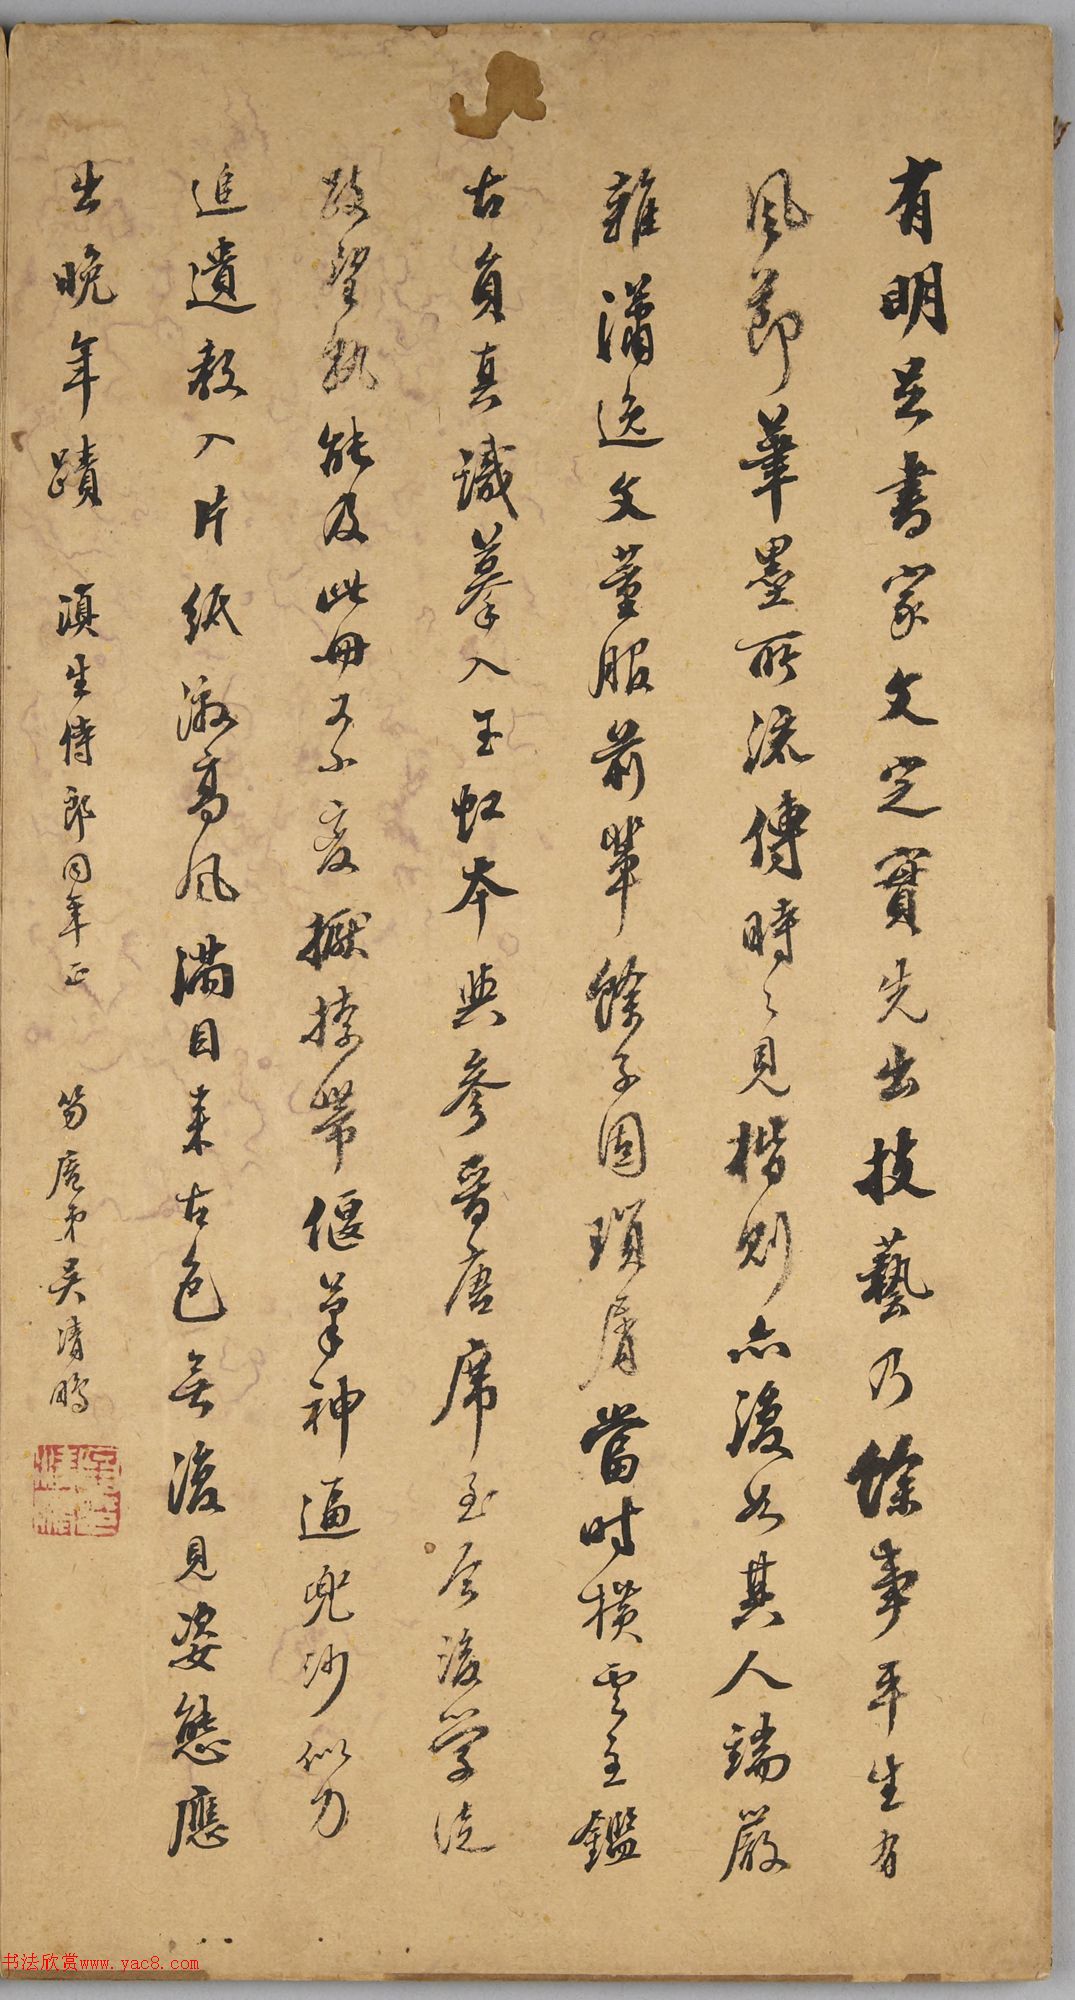 有明足書家文定實先出技藝乃餘事平生有
風節筆墨所流傳時々見楷則亦復如其人端嚴
雜瀟逸文董服前輩餘子固瑣屑當時橫雲主鑑
古負真識摹入玉虹本與參晉唐席至今後學徒
跂望孰能及此冊又小變擫捺帶偃筆神逼兜沙似力
追遺教入片紙激高風滿目來古色無復見姿態應
出晚年蹟 滇生侍郎同年正 笏庵弟吳清鵬
书法欣赏www.yac8.com